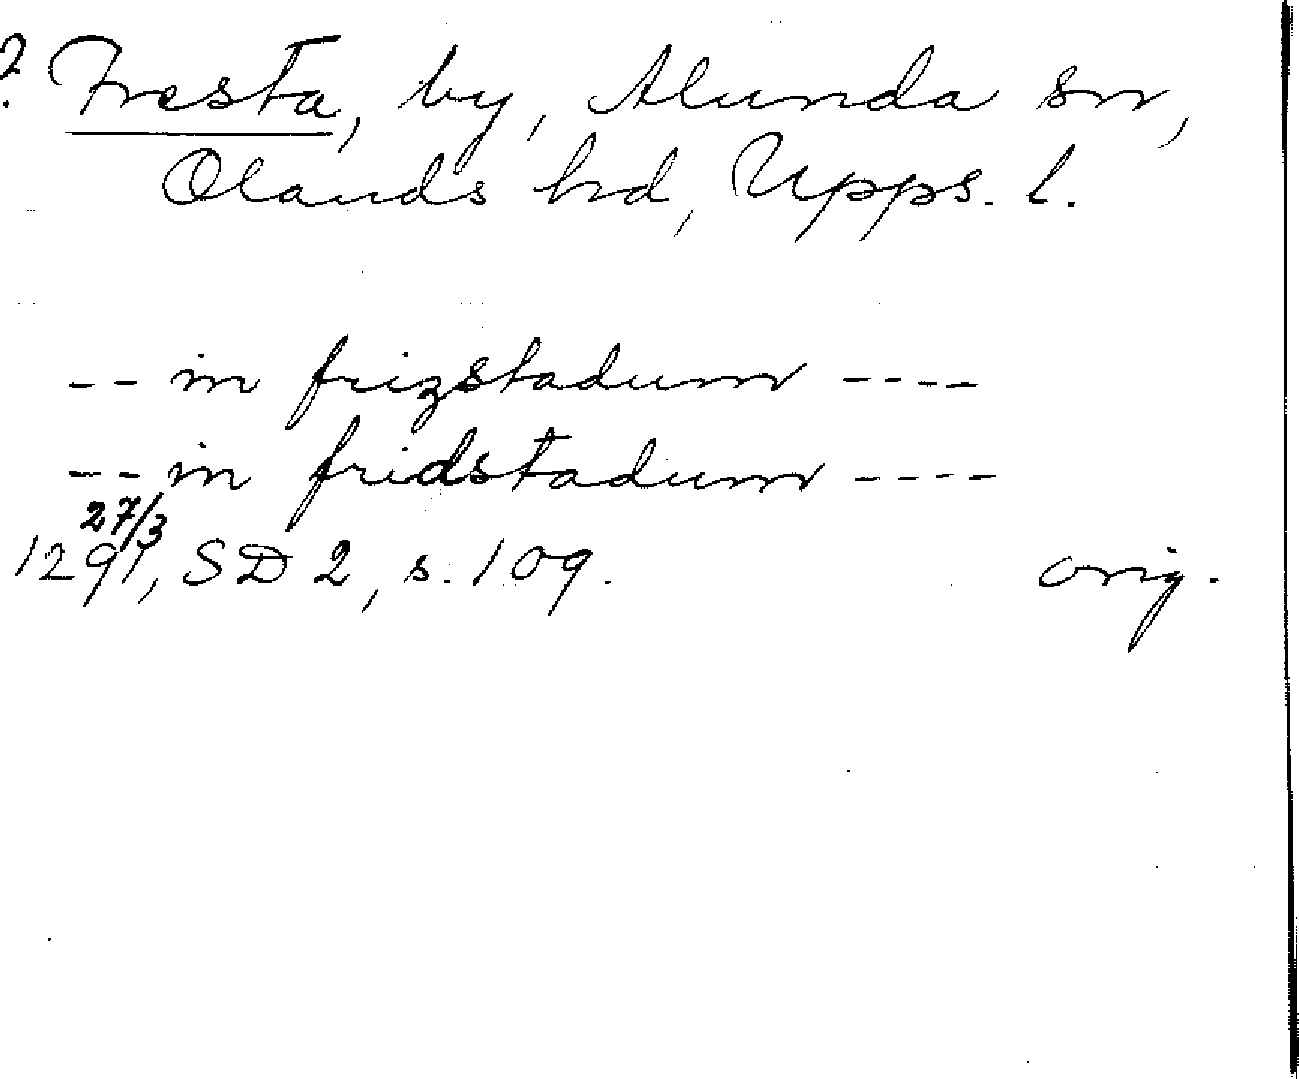 ? Fresta, by, Alunda sn,
Olands hd, Upps. l.
-- in frizstadum ----
-- in fridstadum ----
27/3
1291, SD 2, s. 109. orig.